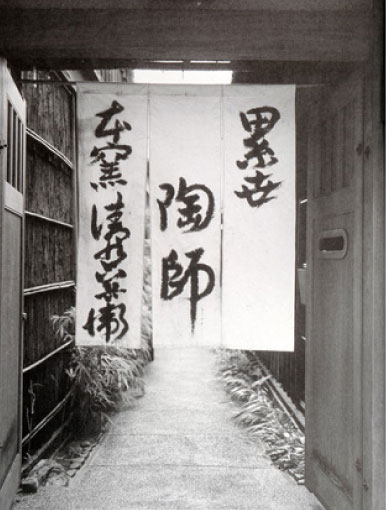 累世
陶師
本窯清水六兵衛